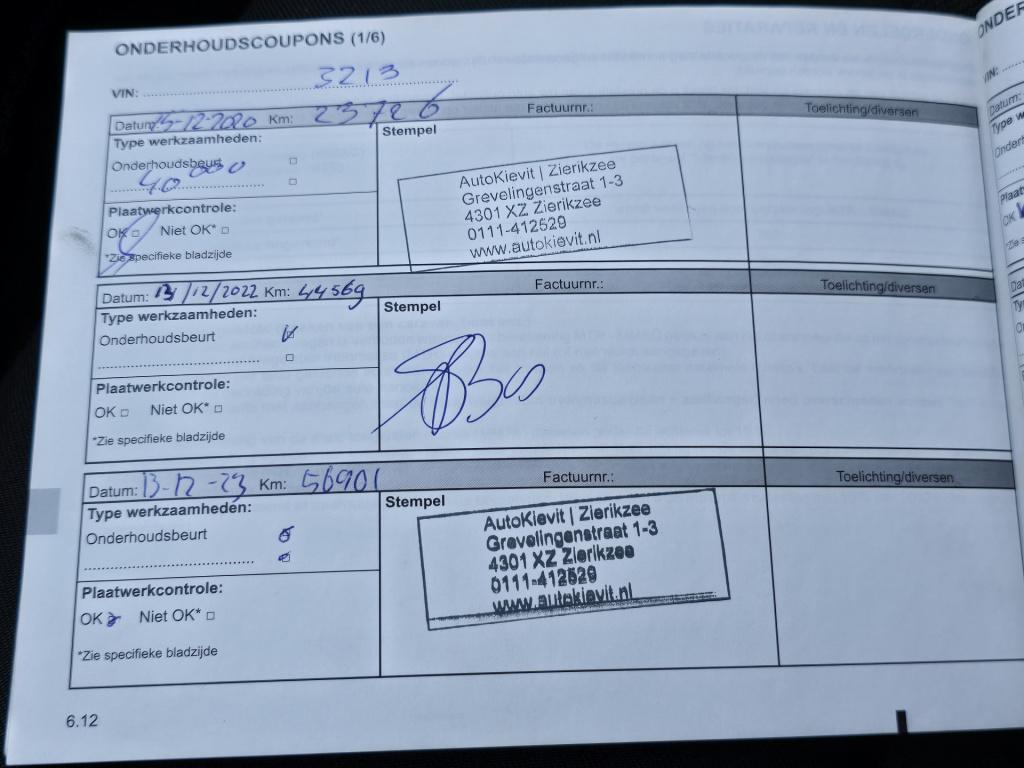 ONDERHOUDSCOUPONS (1/6)
VIN: 3213
Datum: 15-12-2020 Km: 23726 Factuurnr.: Toelichting/diversen
Type werkzaamheden:
Stempel
Onderhoudsbeurt
Plaatwerkcontrole:
OK Niet OK*
*Zie specifieke bladzijde
AutoKievit | Zierikzee
Grevelingenstraat 1-3
4301 XZ Zierikzee
0111-412529
www.autokievit.nl
Datum: 13/12/2022 Km: 44569 Factuurnr.: Toelichting/diversen
Type werkzaamheden:
Stempel
Onderhoudsbeurt
Plaatwerkcontrole:
OK Niet OK*
*Zie specifieke bladzijde
Datum: 13-12-23 Km: 56901 Factuurnr.: Toelichting/diversen
Type werkzaamheden:
Stempel
Onderhoudsbeurt
Plaatwerkcontrole:
OK Niet OK*
*Zie specifieke bladzijde
AutoKievit | Zierikzee
Grevelingenstraat 1-3
4301 XZ Zierikzee
0111-412529
www.autokievit.nl
6.12